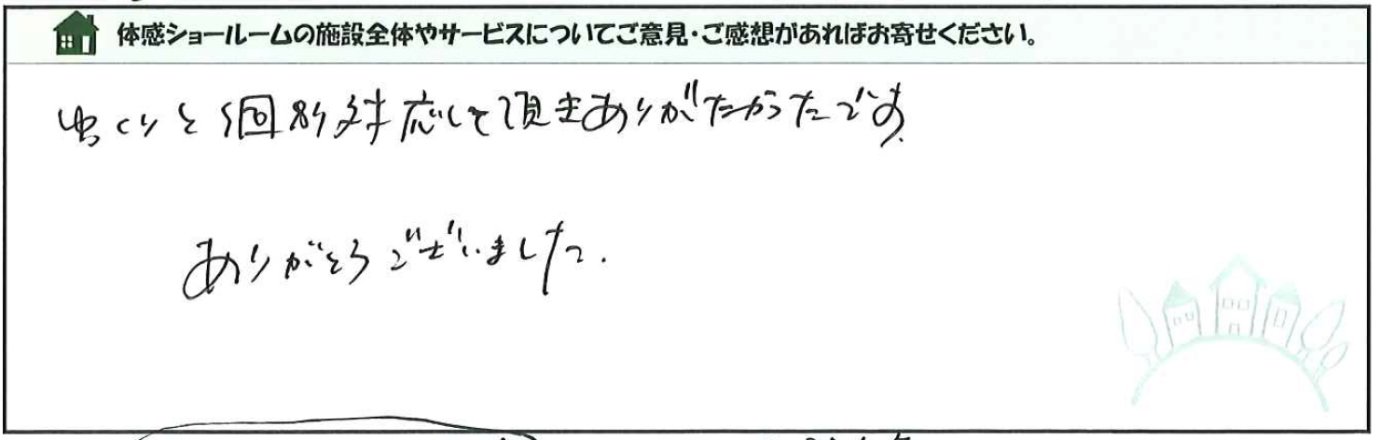 体感ショールームの施設全体やサービスについてご意見・ご感想があればお寄せください。
ゆっくりと個別対応して頂きありがたかったです。
ありがとうございました.